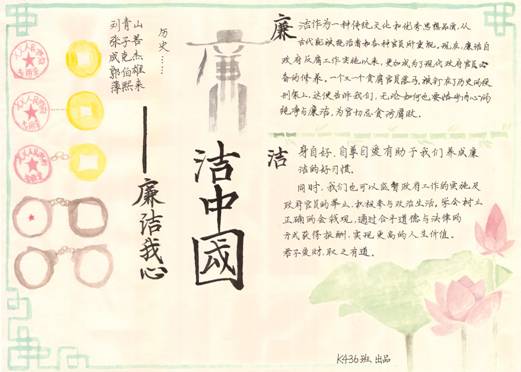 刘青山
张子善
成克杰
郭伯雄
薄熙来
历史……
洁中國
——廉洁我心
廉洁作为一种传统文化和优秀思想品质,从
古代就被统治者和各种官员所重视。现在,廉洁自
政府反腐工作实施以来,更加成为了现代政府官员必
备的修养。一个又一个贪腐官员落马,被钉在了历史的
刑架上。这便告诉我们,无论如何也要恪守内心的
纯净与廉洁,为官切忌贪污腐败。
洁身自好、自尊自爱有助于我们养成廉
洁的好习惯。
同时,我们也可以监督政府工作的实施及
政府官员的举止,积极参与政治生活,学会树立
正确的金钱观,通过合乎道德与法律的
方式获得报酬,实现更高的人生价值。
君子爱财,取之有道。
K436班 出品